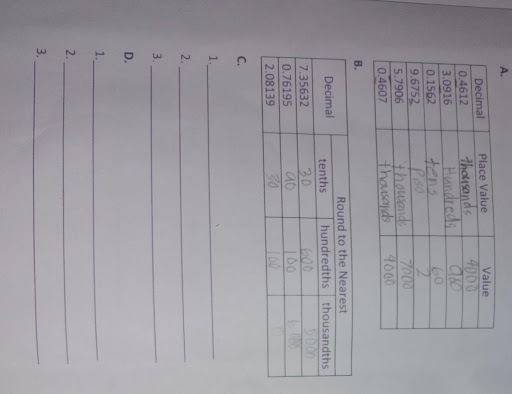 A.
Decimal Place Value Value
0.4612 thousands 4000
3.0916 Hundreds 900
0.1562 tens 60
9.6752 2
5.7906 thousands 7000
0.4607 thousands 9000
B.
Decimal Round to the Nearest
tenths hundredths thousandths
7.35632 30 600 5000
0.76195 90 100
2.08139 30 100
C.
1.
2.
3.
D.
1.
2.
3.